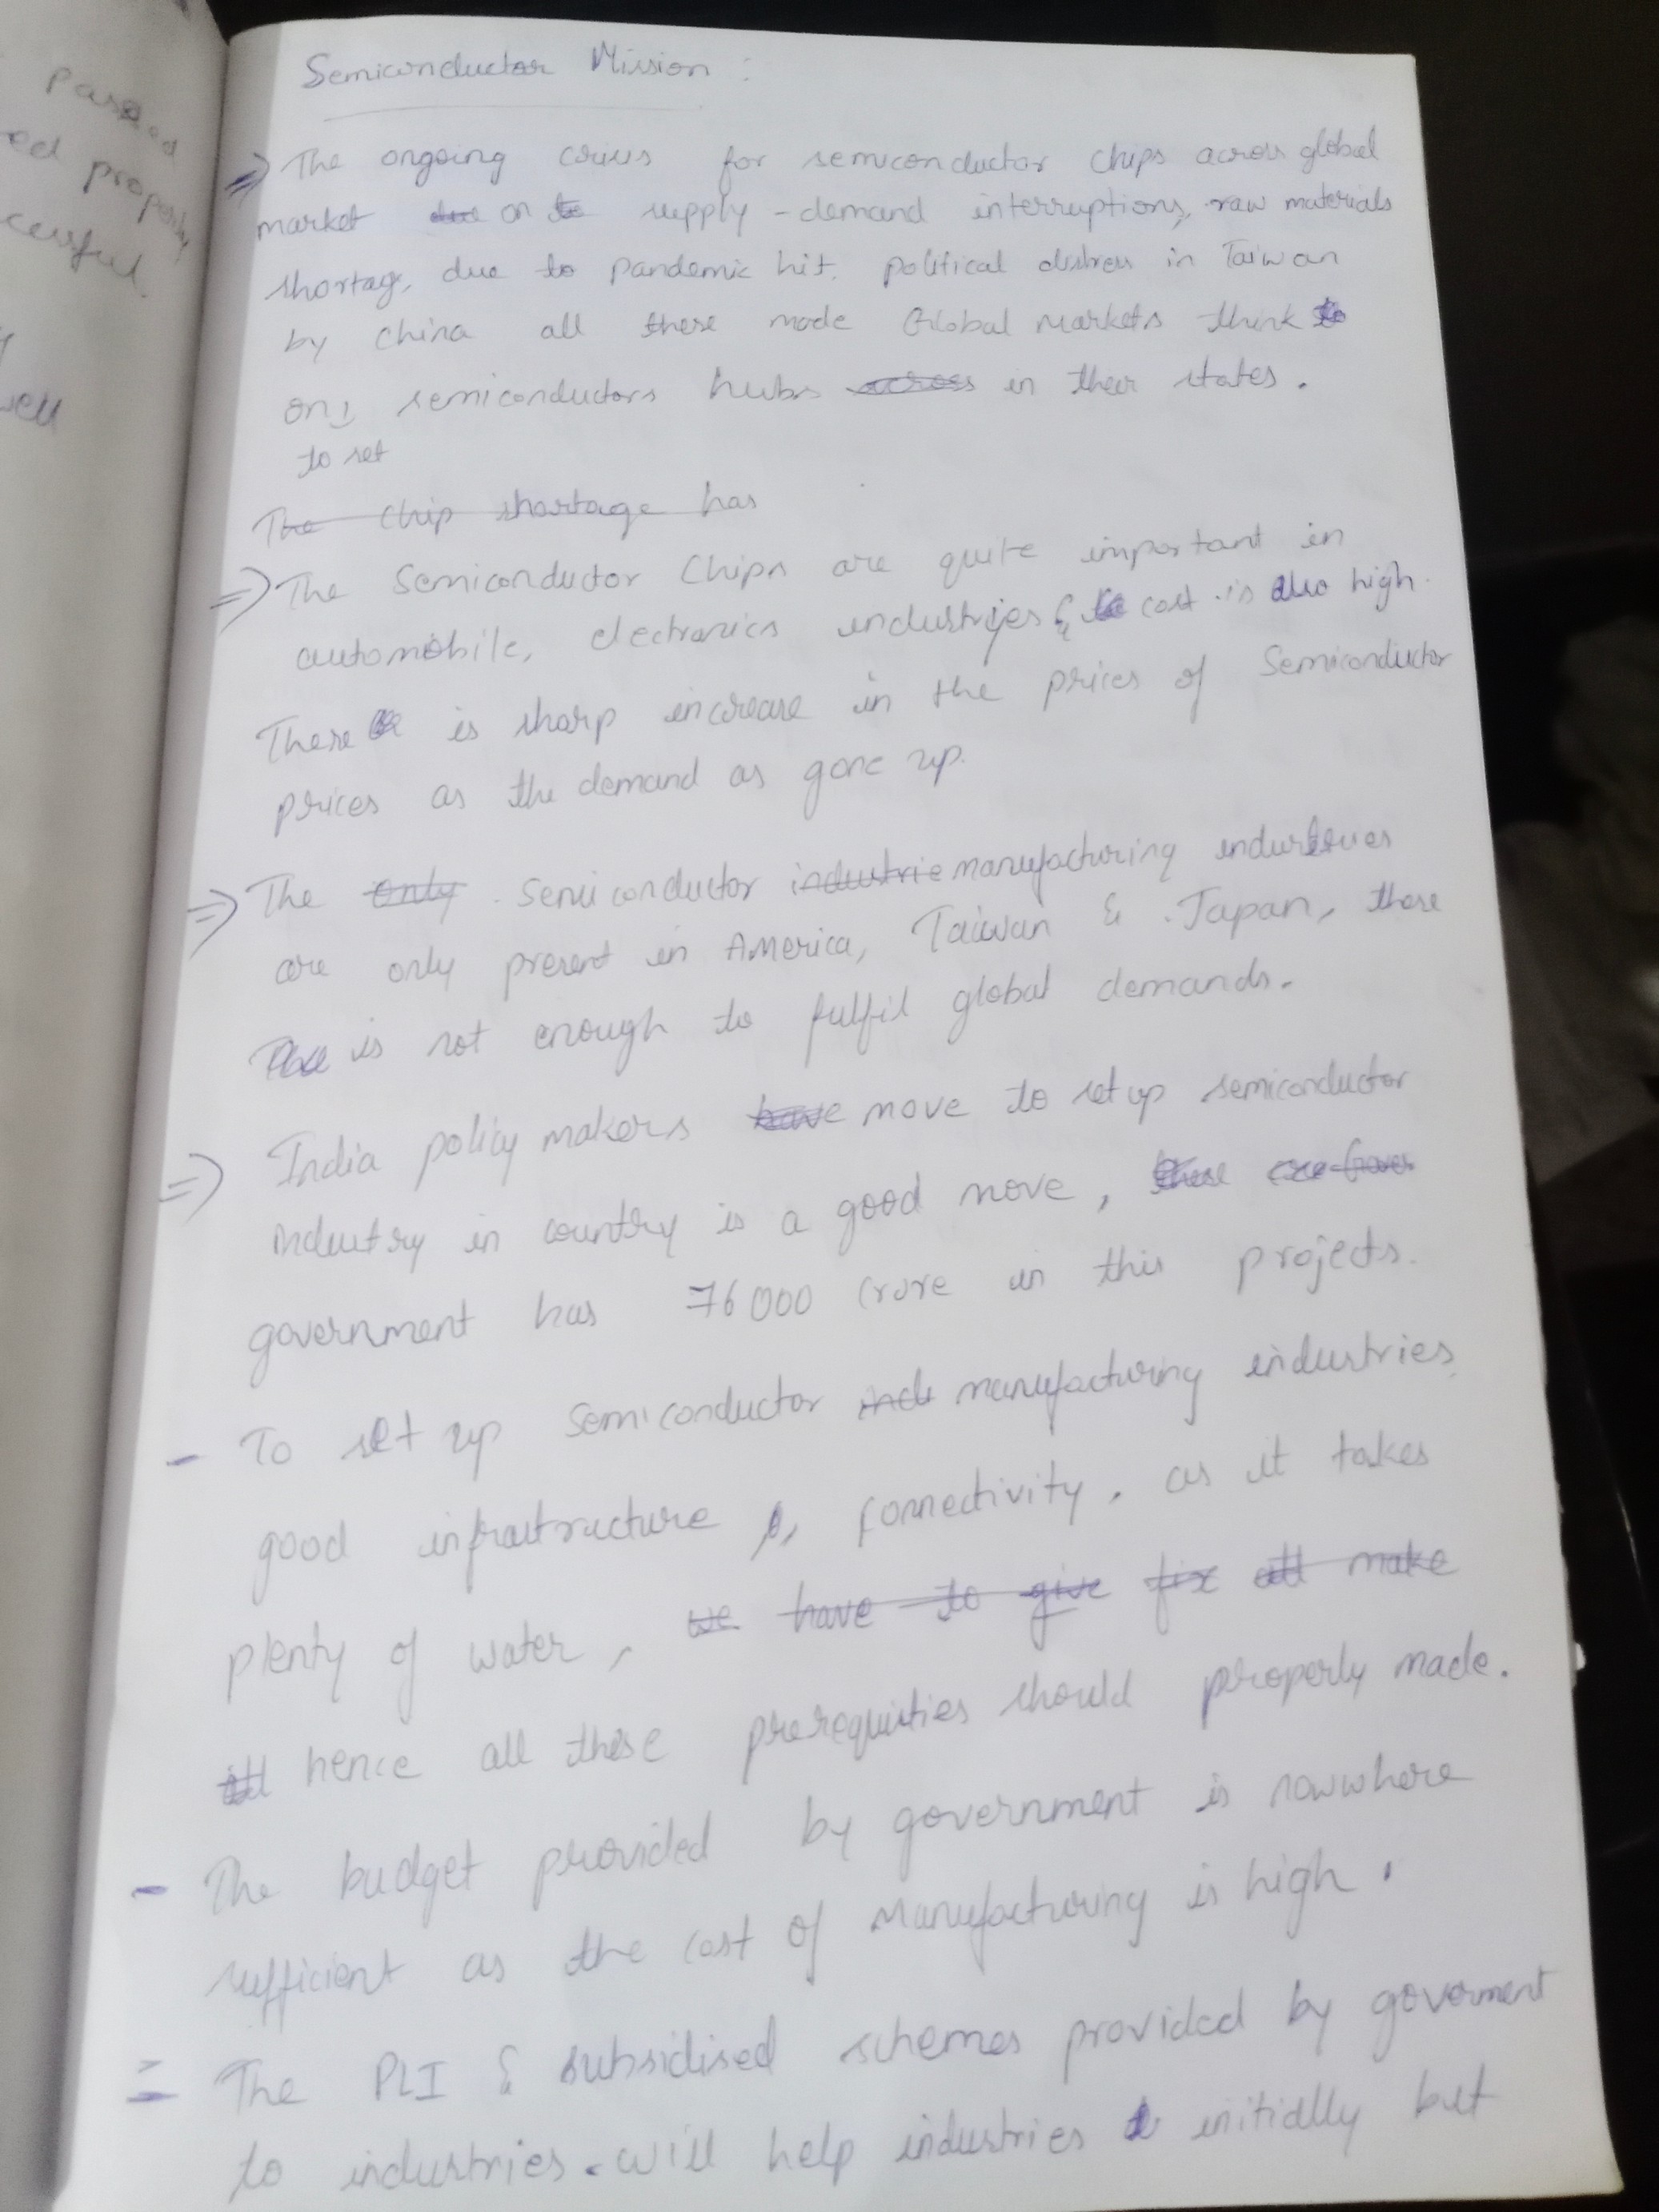 Parsed
ed properly
cessful.
well
Semiconductor Mission :
=> The ongoing crisis for semiconductor chips across global
market due on to supply - demand interruptions, raw materials
shortag, due to pandemic hit. political distress in Taiwan
by China all these made Global Markets think to
on, semiconductors hubs across in their states.
to set
The Chip shortage has
=> The Semiconductor Chips are quite important in
automobile, electronics industries & cost is also high.
There is sharp increase in the prices of Semiconductor
prices as the demand as gone up.
=> The only semiconductor industrie manufacturing industries
are only present in America, Taiwan & Japan, these
is not enough to fulfil global demands.
=> India policy makers have move to set up semiconductor
industry in country is a good move, these
government has 76000 Crore in this projects.
- To set up semiconductor ind manufacturing industries
good infrastructure , connectivity, as it takes
plenty of water, we have to give fix all make
all hence all these prerequisties should properly made.
- The budget provided by government is nowwhere
sufficient as the cost of Manufacturing is high.
= The PLI & subsidised schemes provided by goverment
to industries. will help industries initially but